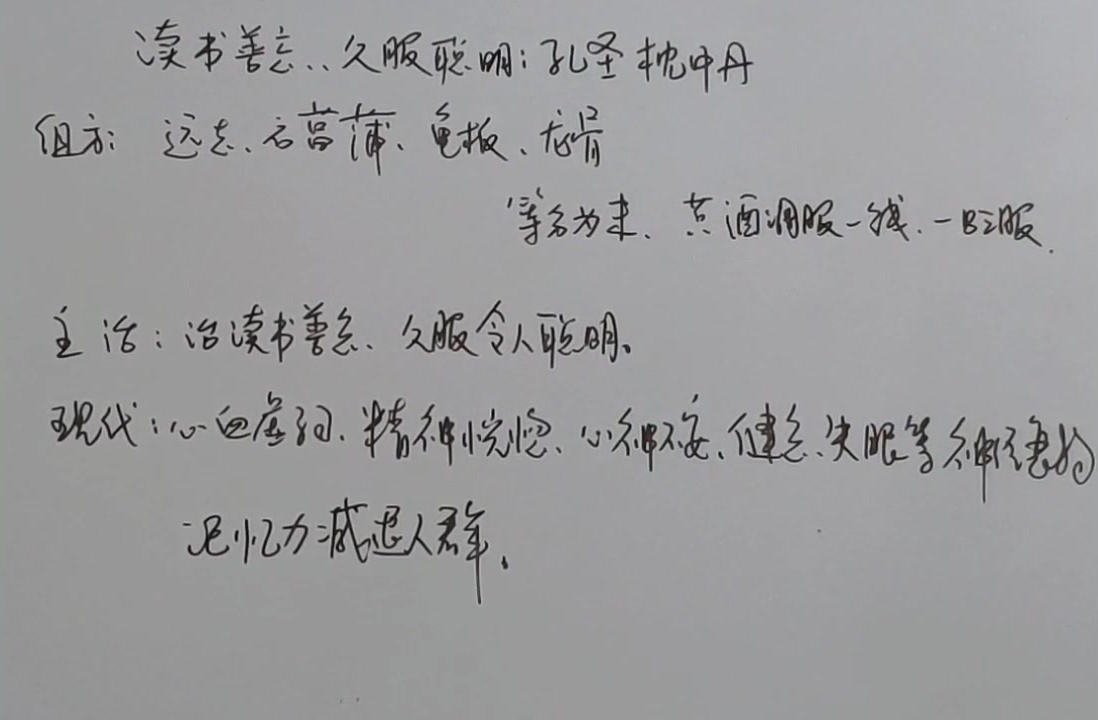 读书善忘、久服聪明：孔圣枕中丹
组方：远志、石菖蒲、龟板、龙骨
等分为末、黄酒调服一钱、一日三服.
主治：治读书善忘、久服令人聪明。
现代：心血虚弱、精神恍惚、心神不安、健忘、失眠等神经衰弱
记忆力减退人群.